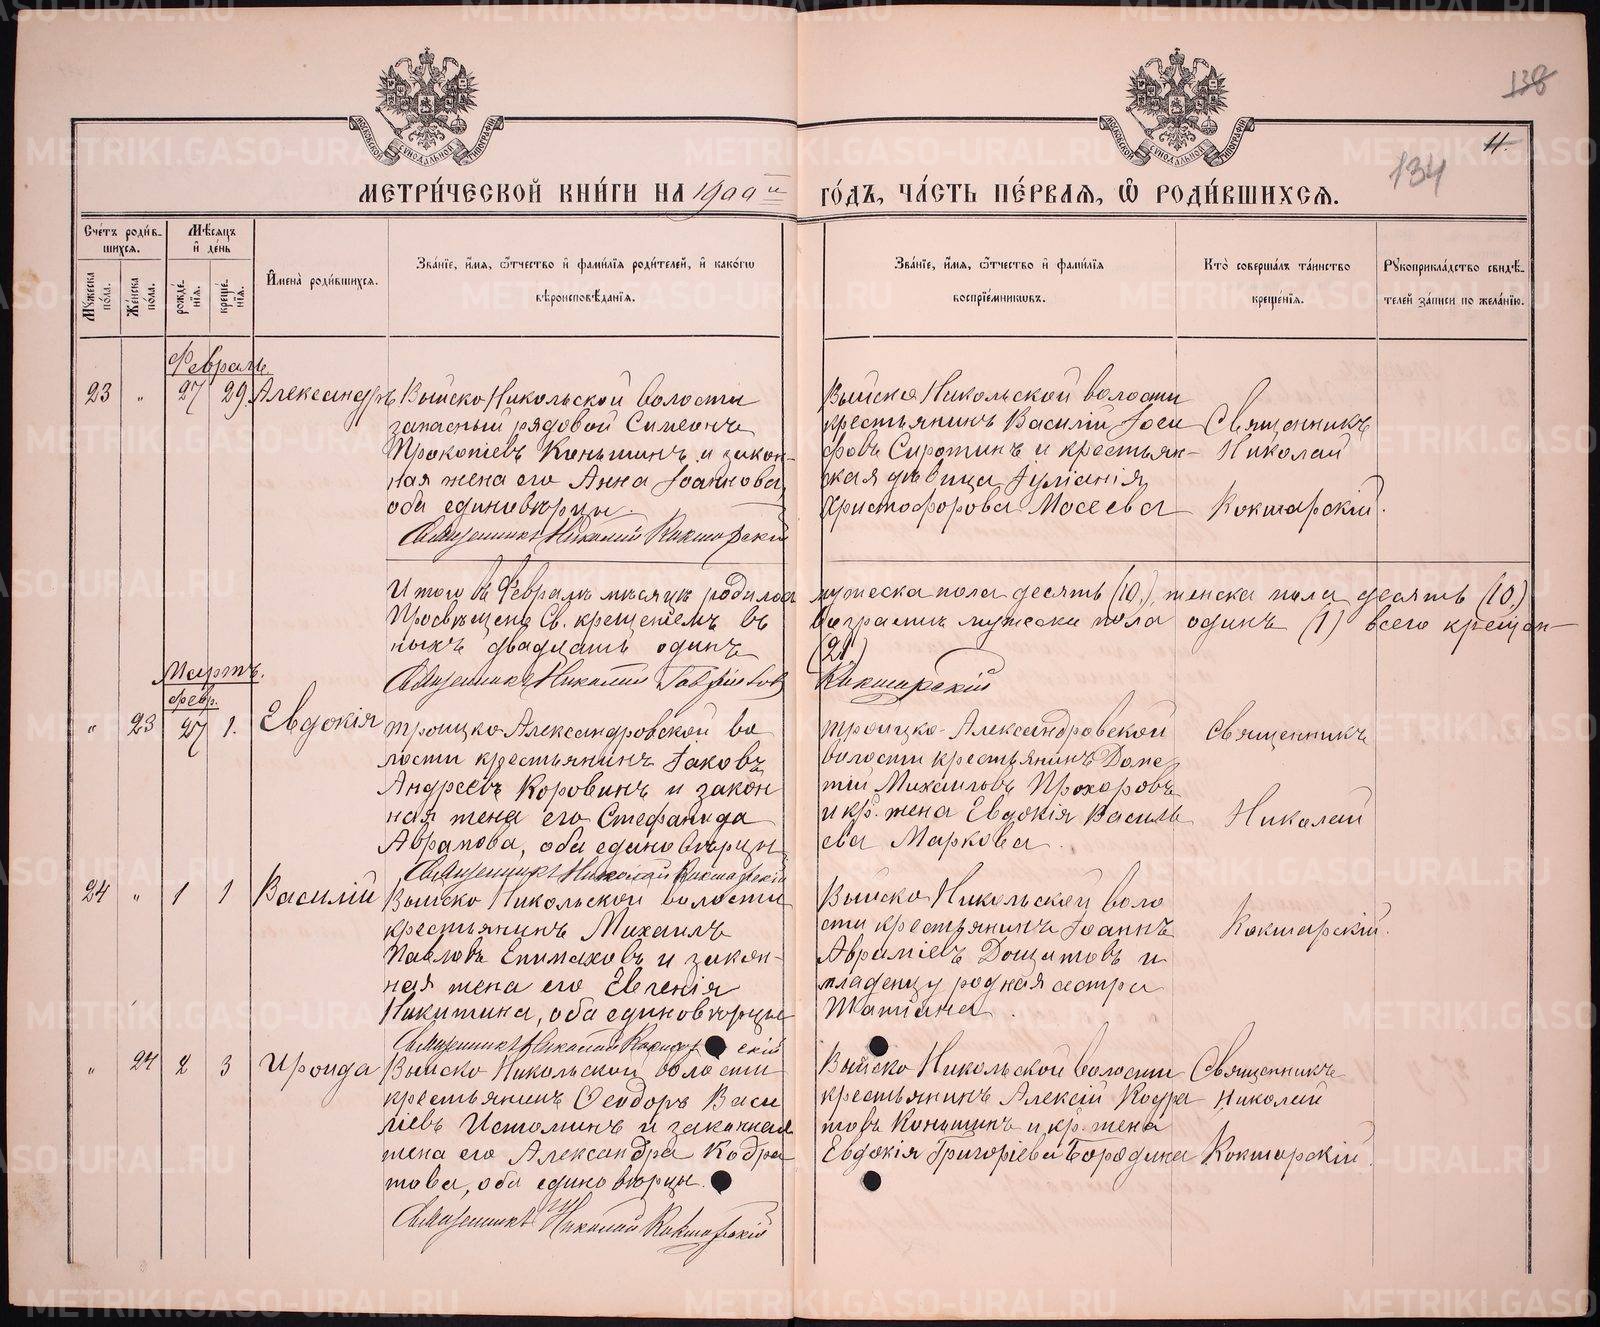 138
134
11.
МОСКОВСКОЙ СѴНОДАЛЬНОЙ ТИПОГРАФІИ
МОСКОВСКОЙ СѴНОДАЛЬНОЙ ТИПОГРАФІИ
МЕТРИ́ЧЕСКОЙ КНИ́ГИ НА
ГО́ДЪ, ЧА́СТЬ ПЕ́РВАЯ, Ѽ РОДИ́ВШИХСѦ.
Сче́тъ роди́в-
шихсѧ.
Мѣ́сѧцъ
и де́нь
Мꙋ́жеска
по́ла.
Же́нска
по́ла.
рожде́-
нїѧ.
креще́-
нїѧ.
Имена̀ роди́вшихсѧ.
Зва́нїе, и́мѧ, ѻ҆́тчество и фами́лїѧ роди́телей, и како́гѡ
вѣроисповѣ́данїѧ.
Зва́нїе, и́мѧ, ѻ҆́тчество и фами́лїѧ
воспрїе́мникѡвъ.
Кто̀ соверша́лъ та́инство
креще́нїѧ.
Рꙋкоприкла́дство свидѣ́-
телей за́писи по жела́нїю.
Февраль.
23 „ 27 29. Александръ
Выйско Никольской волости
запасный рядовой Симеонъ
Прокопіевъ Коньшинъ и закон-
ная жена его Анна Іоаннова,
оба единовѣрцы.
Священникъ Николай Кокшарскій
Выйско Никольской волости
крестьянинъ Василій Іоси
фовъ Сиротинъ и крестьян-
ская дѣвица Іуліанія
Христофорова Мосеева
Священникъ
Николай
Кокшарскій.
Итого въ Февралѣ мѣсяцѣ родилося мужеска пола десять (10.), женска пола десять (10.)
Просвѣщено Св. крещеніемъ въ возрастѣ мужеска пола одинъ (1) всего крещен-
ныхъ двадцать одинъ (21)
Священникъ Николай Кокшарскій
Мартъ.
Февр.
„ 23 27 1. Евдокія
Троицко-Александровской во
лости крестьянинъ Іаковъ
Андреевъ Коровинъ и закон
ная жена его Стефанида
Аврамова, оба единовѣрцы
Священникъ Николай Кокшарскій
Троицко-Александровской
волости крестьянинъ Доме
тій Михаиловъ Прохоровъ
и кр. жена Евдокія Василь
ева Маркова.
Священникъ
Николай
24 „ 1 1 Василій
Выйско Никольской волости
крестьянинъ Михаилъ
Павловъ Епимаховъ и закон-
ная жена его Евгенія
Никитина, оба единовѣрцы
Священникъ Николай Кокшарскій
Выйско Никольской воло
сти крестьянинъ Іоаннъ
Аврамiевъ Дощатовъ и
младенцу родная сестра
Татіана.
Кокшарскій.
„ 24 2 3 Ироида
Выйско Никольской волости
крестьянинъ Ѳеодоръ Васи
ліевъ Истоминъ и законная
жена его Александра Кодра
това, оба единовѣрцы.
Священникъ Николай Кокшарскій
Выйско Никольской волости
крестьянинъ Алексій Кодра
товъ Коньшинъ и кр. жена
Евдокія Григоріева Бородина
Священникъ
Николай
Кокшарскій.
METRIKI.GASO-URAL.RU